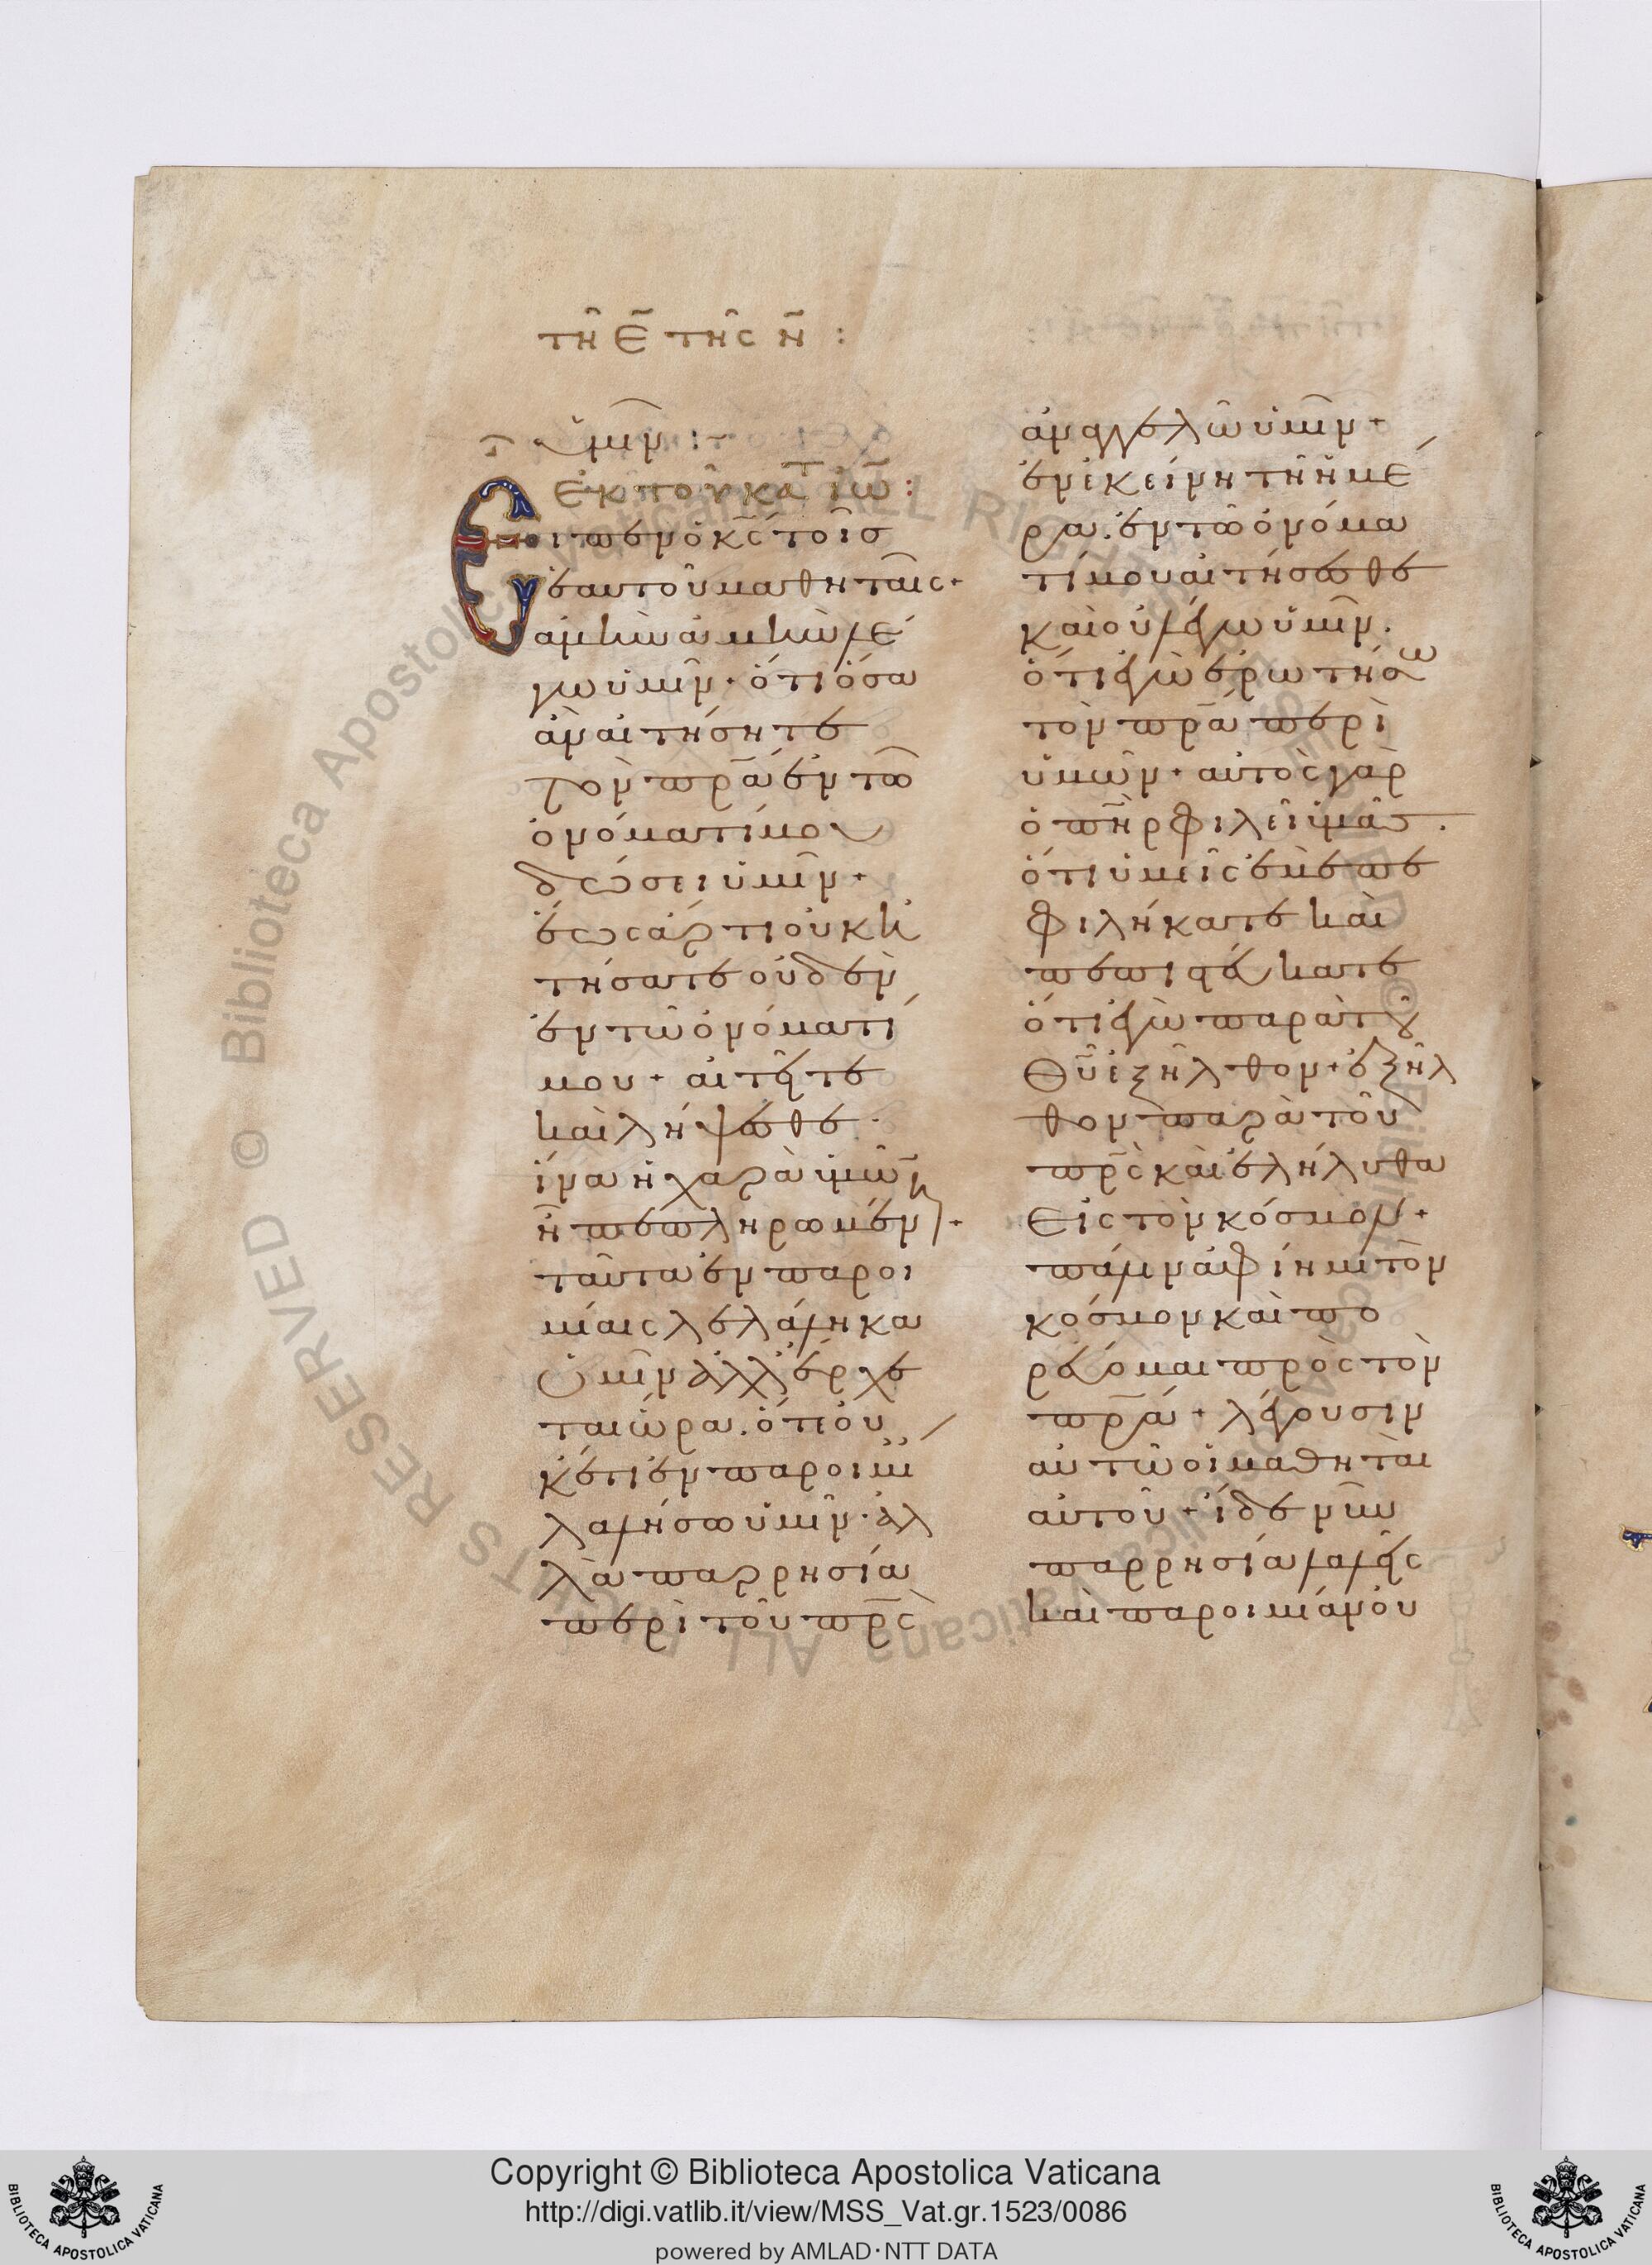 τῆ ε̄ τῆς ν̄ :
ὑμῖν :~
ἐκ τοῦ κατ ιω :
Ειπεν ὁ κς τοῖσ
ἑαυτοῦ μαθηταῖς +
ἀμὴν ἀμὴν λέ
γω ὑμῖν · ὅτι ὅσα
ἂν αἰτήσητε
τὸν πρα ἐν τῶ
ὀνόματί μου
δώσει ὑμῖν +
ἕως ἄρτι οὐκ ἠ
τήσατε οὐδὲν
ἐν τῶ ὀνόματί
μου + αἰτεῖτε
καὶ λήψεσθε ·
ἵνα ἡ χαρὰ ὑμῶν
ῆ πεπληρωμένη +
ταῦτα ἐν παροι
μίαις λελάληκα
ὑμῖν ἀλλ' ἔρχε
ται ὥρα . ὅτε οὐ
κέτι ἐν παροιμι
λαλήσω ὑμῖν · ἀλ
λὰ παρρησία
περὶ τοῦ πρς
ἀναγγελῶ ὑμῖν +
ἐν ἐκείνη τῆ ἡμέ
ρα . ἐν τῶ ὀνόμα
τί μου αἰτήσεσθε
καὶ οὐ λέγω ὑμῖν .
ὅτι ἐγὼ ἐρωτήσω
τὸν πρα περὶ
ὑμῶν + αὐτὸς γὰρ
ὁ πηρ φιλεῖ ὑμᾶς .
ὅτι ὑμεῖς ἐμὲ πε
φιλήκατε καὶ
πεπιστεύκατε
ὅτι ἐγὼ παρὰ τοῦ
Θυ ἐξῆλθον + ἐξῆλ
θον παρὰ τοῦ
πρς καὶ ἐλήλυθα
εἰς τὸν κόσμον +
πάλιν ἀφίημι τὸν
κόσμον καὶ πο
ρεύομαι πρὸς τὸν
πρα + λέγουσιν
αὐτῶ οἱ μαθηταὶ
αὐτοῦ + ἴδε νῦν
παρρησία λαλεῖς
καὶ παροιμίαν οὐ
Copyright © Biblioteca Apostolica Vaticana
http://digi.vatlib.it/view/MSS_Vat.gr.1523/0086
powered by AMLAD·NTT DATA
BIBLIOTECA APOSTOLICA VATICANA
BIBLIOTECA APOSTOLICA VATICANA